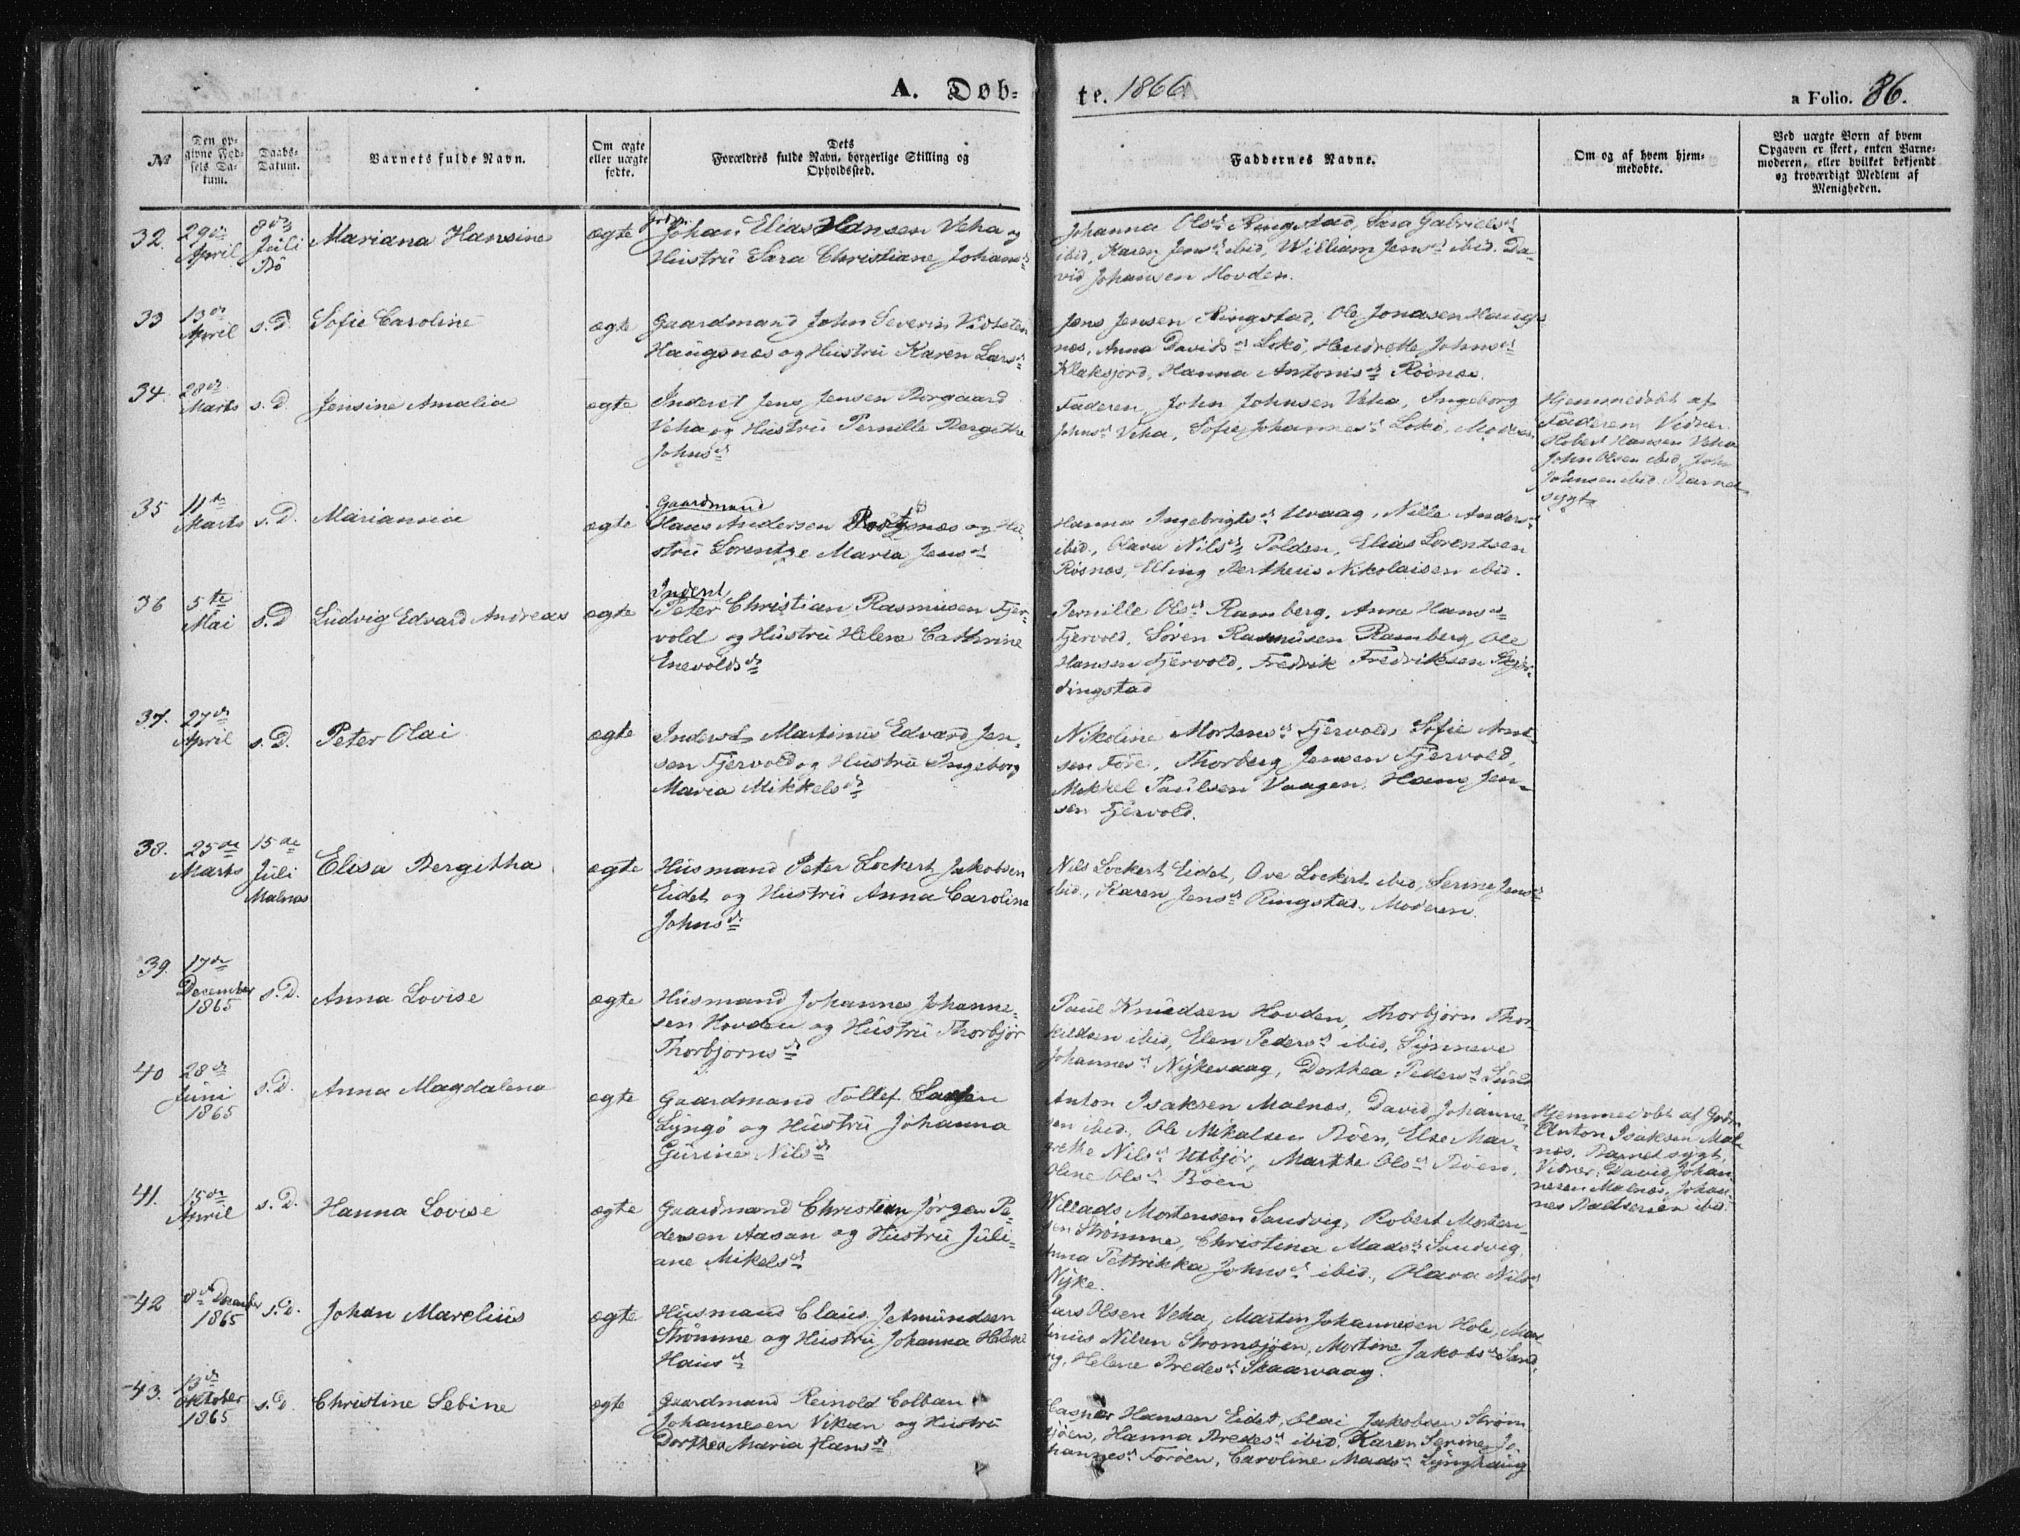 A. Døb-
te. 1866.
a Folio. 86.
No
Den op-
givne Fød-
sels Da-
tum.
Daabs-
Datum.
Barnets fulde Navn.
Om ægte
eller uægte
fødte.
Dets
Forældres fulde Navn, borgerlige Stilling og
Opholdssted.
Faddernes Navne.
Om og af hvem hjem-
medøbte.
Ved uægte Børn af hvem
Opgaven er skeet, enten Barne-
moderen, eller hvilket bekjendt
og troværdigt Medlem af
Menigheden.
32.
29de
April
8de
Juli
Bø
Mariana Hansine
ægte
Johan Elias Hansen Veha og
Hustru Sara Christiane Johansd
Johanna Olsd Ringstad, Sara Gabrielsd
ibid, Karen Jensd ibid, William Jensd ibid. Da-
vid Johansen Hovden.
33
13de
April
s. D.
Sofie Caroline
ægte
Gaardmand John Severin Vidsteen
Haugsnæs og Hustru Karen Larsd
Jens Jensen Ringstad, Ole Jonasen Haugs-
næs, Anna Davidsd Lokø, Hendrette Johnsd
Klaksjord, Hanna Antonisd Røsnæs.
34.
28de
Marts
s. D.
Jensine Amalia
ægte
Inderst Jens Jensen Borgaard
Veha og Hustru Pernille Bergithe
Johnsd
Faderen, John Johnsen Veha, Ingeborg
Johnsd Veha, Sofie Johannesd Lokø, Moderen
Hjemmedøbt af
Faderen Vidner
Robert Hansen Veha
John Olsen ibid, John
Johnsen ibid. Barnet
sygt
35
11te
Marts
s. D.
Marianna
ægte
Gaardmand
Hans Andersen Røsnæs og Hu-
stru Lorentze Maria Jensd
Hanna Ingebrigtsd Uvaag, Nille Andersd
ibid., Olava Nilsd Polden, Elias Lorentsen
Røsnæs, Elling Bertheus Nikolaisen ibid.
36
5te
Mai
s. D
Ludvig Edvard Andreas
ægte
Inderst
Peter Christian Rasmusen Fjer-
vold og Hustru Helena Cathrine
Enevoldsd
Pernille Olsd Ramberg, Anna Hansd
Fjervold, Søren Rasmusen Ramberg, Ole
Hansen Fjervold, Fredrik Fredriksen Skjer-
dingstad
37.
27de
April
s. D.
Peter Olai
ægte
Inderst Martinus Edvard Jen-
sen Fjervold og Hustru Ingeborg
Maria Mikkelsd
Nikoline Mortensd Fjervold, Sofie Arnt-
sen Føre, Thorberg Jensen Fjervold,
Mikkel Paulsen Vaagen, Hans Jen-
sen Fjervold.
38.
25de
Marts
15de
Juli
Malnæs
Elisa Bergitha
ægte
Husmand Peter Lockert Jakobsen
Eidet og Hustru Anna Caroline
Johnsd
Nils Lockert Eidet, Ove Lockert ibid, Serine Jensd
ibid., Karen Jensd Ringstad., Moderen.
39.
17de
December
1865
s. D.
Anna Lovise
ægte
Husmand Johannes Johanne-
sen Hovden og Hustru Thorbjør
Thorbjørnsd
Paul Knudsen Hovden, Thorbjørn Thor-
kildsen ibid, Elen Pedersd ibid, Synneve
Johannesd Nykevaag, Dorthea Pedersd Lund
40
28de
Juni
1865
s. D.
Anna Magdalena
ægte
Gaardmand Tollef Larsen
Lyngø og Hustru Johanna
Gurine Nilsd
Anton Isaksen Malnæs, David Johanne-
sen ibid., Ole Mikalsen Bøen, Else Mar-
grethe Nilsd Utbjør, Marthe Olsd Bøen,
Oline Olsd Bøen
Hjemmedøbt af Gdm
Anton Isaksen Mal-
næs, Barnet sygt,
Vidner: David Johan-
nesen Malnæs, Johan-
nes Baltsersen ibid.
41.
15de
April
s. D.
Hanna Lovise
ægte
Gaardmand Christian Jørgen Pe-
dersen Aasan og Hustru Juli-
ane Mikelsd
Willads Mortensen Sandvig, Robert Morten-
sen Strømme, Christina Madsd Sandvig,
Anna Pettrikka Johnsd ibid., Olava Nilsd
Nyke.
42
8de December
1865
s. D.
Johan Marelius
ægte
Husmand Claus Jetmundsen
Strømme og Hustru Johanna Helene
Hansd
Lars Olsen Veha, Martin Johannesen Hole, Mar-
tinus Nilsen Strømsjøen, Mortine Jakobsd Sand-
vig, Helene Bredesd Skaarvaag.
43.
13de
Oktober
1865
s. D
Christine Sebine
ægte
Gaardmand Reinold Colban
Johannesen Vikan og Hustru
Dorthea Maria Hansd
Casper Hansen Eidet, Olai Jakobsen Strøm-
sjøen, Hanna Bredesd ibid, Karen Serine Jo-
hannesd Førøen, Caroline Madsd Lynghaug